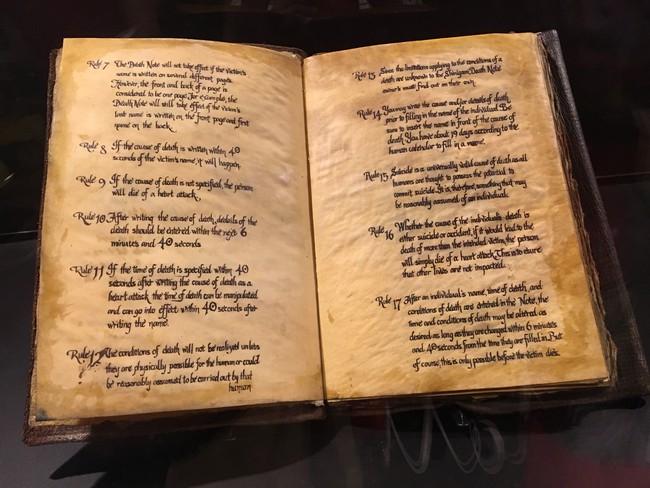 Rule 7 The Death Note will not take effect if the victim's
name is written on several different pages.
However, the front and back of a page is
considered to be one page, for example, the
Death Note will still take effect if the victim's
last name is written on the front page and first
name on the back.
Rule 8 If the cause of death is written within 40
seconds of the victim's name, it will happen.
Rule 9 If the cause of death is not specified, the person
will die of a heart attack.
Rule 10 After writing the cause of death, details of the
death should be entered within the next 6
minutes and 40 seconds
Rule 11 If the time of death is specified within 40
seconds after writing the cause of death as a
heart attack, the time of death can be manipulated
and can go into effect within 40 seconds after
writing the name.
Rule 12 The conditions of death will not be realized unless
they are physically possible for the human or could
be reasonably assumed to be carried out by that
human
Rule 13 Since the limitations applying to the conditions of a
death are unknown to the Shinigami, Death Note
owner's must find out on their own.
Rule 14 You may write the cause and/or details of death
prior to filling in the name of the individual. Be
sure to insert the name in front of the cause of
death. You have about 19 days according to the
human calendar to fill in a name.
Rule 15 Suicide is a universally valid cause of death as all
humans are thought to possess the potential to
commit suicide. It is, therefore, something that may
be reasonably assumed of an individual.
Rule 16 Whether the cause of the individuals death is
either suicide or accident, if it would lead to the
death of more than the intended victim, the person
will simply die of a heart attack. This is to ensure
that other lives are not impacted.
Rule 17 After an individual's name, time of death, and
conditions of death are entered in the Note, the
time and conditions of death may be altered as
desired as long as they are changed within 6 minutes
and 40 seconds from the time they are filled in. But
of course, this is only possible before the victim dies.